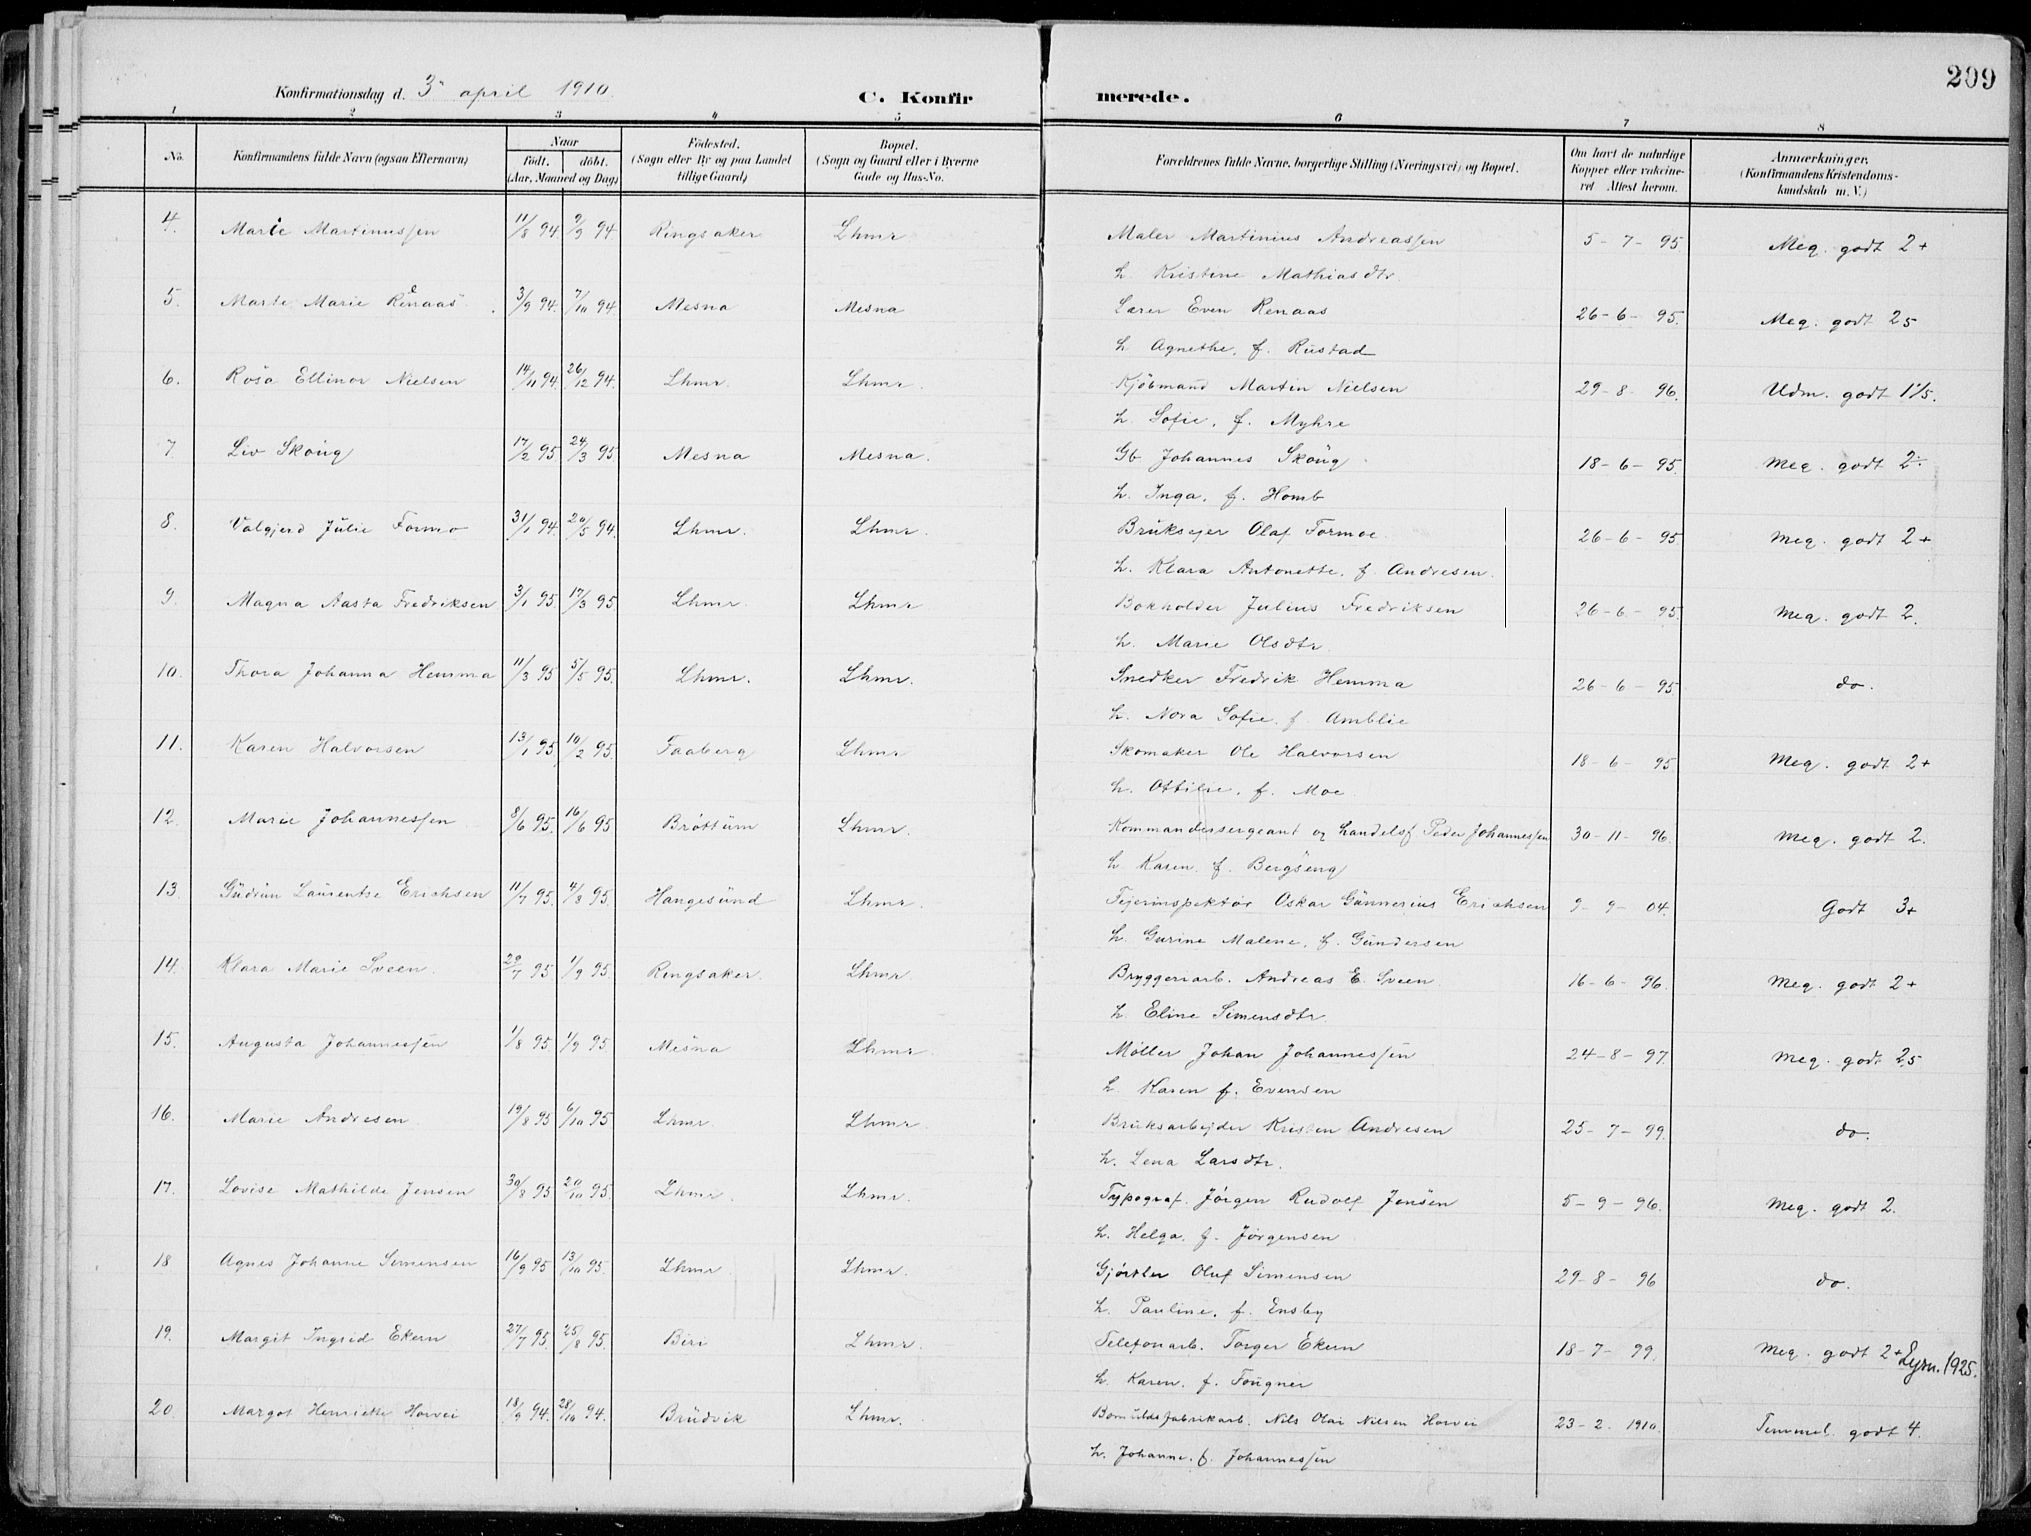 209
Konfirmationsdag d. 3' april 1910.
C. Konfirmerede.
1 2 3 4 5 6 7 8
No. Konfirmandens fulde Navn (ogsaa Efternavn) Naar født. døbt. (Aar, Maaned og Dag) Fødested. (Sogn eller By og paa Landet tillige Gaard) Bopæl. (Sogn og Gaard eller i Byerne Gade og Hus-No. Forældrenes fulde Navne, borgerlige Stilling (Næringsvei) og Bopæl. Om havt de naturlige Kopper eller vakcineret Attest herom. Anmærkninger, (Konfirmandens Kristendomskundskab m. V.)
4. Marie Martinussen 11/8 94. 9/9 94 Ringsaker Lhmr Maler Martinius Andreassen 5-7-95 Meg. godt 2+
h. Kristine Mathiasdtr.
5. Marte Marie Renaas 3/9 94. 7/10 94. Mesna Mesna Lærer Even Renaas 26-6-95. Meg. godt 25
h Agnethe, f. Rustad
6. Rosa Ellinor Nielsen 14/11 94. 26/12 94. Lhmr. Lhmr. Kjøbmand Martin Nielsen 29-8-96. Udm. godt 1 1/5.
h. Sofie, f. Myhre
7. Liv Skoug 17/2 95. 24/3 95 Mesna Mesna. Gb. Johannes Skoug 18-6-95. Meg. godt 2÷
h. Inga, f. Homb
8. Valgjerd Julie Formo 31/1 94. 20/5 94. Lhmr. Lhmr. Bruksejer Olaf Formoe 26-6-95. Meg. godt 2+
h. Klara Antonette, f. Andresen.
9. Magna Aasta Fredriksen 3/1 95. 17/3 95. Lhmr. Lhmr Bokholder Julius Fredriksen 26-6-95. Meg. godt 2.
h. Marie Olsdtr.
10. Thora Johanna Hemma 11/3 95 5/5 95. Lhmr. Lhmr. Snedker Fredrik Hemma 26-6-95 do.
h. Nora Sofie, f. Amblie
11. Karen Halvorsen 13/1 95. 10/2 95. Faaberg Lhmr Skomaker Ole Halvorsen 18-6-95 Meg. godt 2+
h. Ottilie, f. Moe
12. Marie Johannessen 8/6 95. 16/6 95 Brøttum Lhmr. Kommandersergeant og handelsf Peder Johannessen 30-11-96. Meg. godt 2.
h Karen f. Bergseng
13 Gudrun Laurentse Erichsen 11/7 95. 4/8 95 Haugesund Lhmr. Fejerinspektør Oskar Gunnerius Erichsen 9-9-04. Godt 3+
h. Gurine Malene, f. Gundersen
14. Klara Marie Sveen. 29/7 95 1/9 95 Ringsaker. Lhmr Bryggeriarb. Andreas E. Sveen. 16-6-96. Meg. godt 2+
h. Eline Simensdtr.
15. Augusta Johannessen 1/8 95. 1/9 95 Mesna Lhmr. Møller Johan Johannessen 24-8-97. Meg. godt 25
h. Karen f. Evensen
16. Marie Andresen 19/8 95 6/10 95 Lhmr. Lhmr. Bruksarbejder Kristen Andresen 25-7-99. do.
h. Lena Larsdtr.
17. Lovise Mathilde Jensen 30/8 95 20/10 95. Lhmr. Lhmr. Typograf. Jørgen Rudolf Jensen 5-9-96. Meg. godt 2.
h. Helga, f. Jørgensen
18 Agnes Johanne Simensen 16/9 95 13/10 95. Lhmr. Lhmr. Gjørtler Oluf Simensen 29-8-96 do.
h. Pauline, f. Ensby
19. Margit Ingrid Ekern 27/7 95. 25/8 95. Biri Lhmr. Telefonarb. Torger Ekern 18-7-99. Meg. godt 2+ 1925.
h. Karen. f. Fougner
20 Margot Henriette Horvei 18/9 94. 28/10 94. Brudvik Lhmr. Bomuldsfabrikarb. Nils Olai Nilsen Horvei 23-2.1910. Temmel. godt 4.
h. Johanne. f. Johannessen